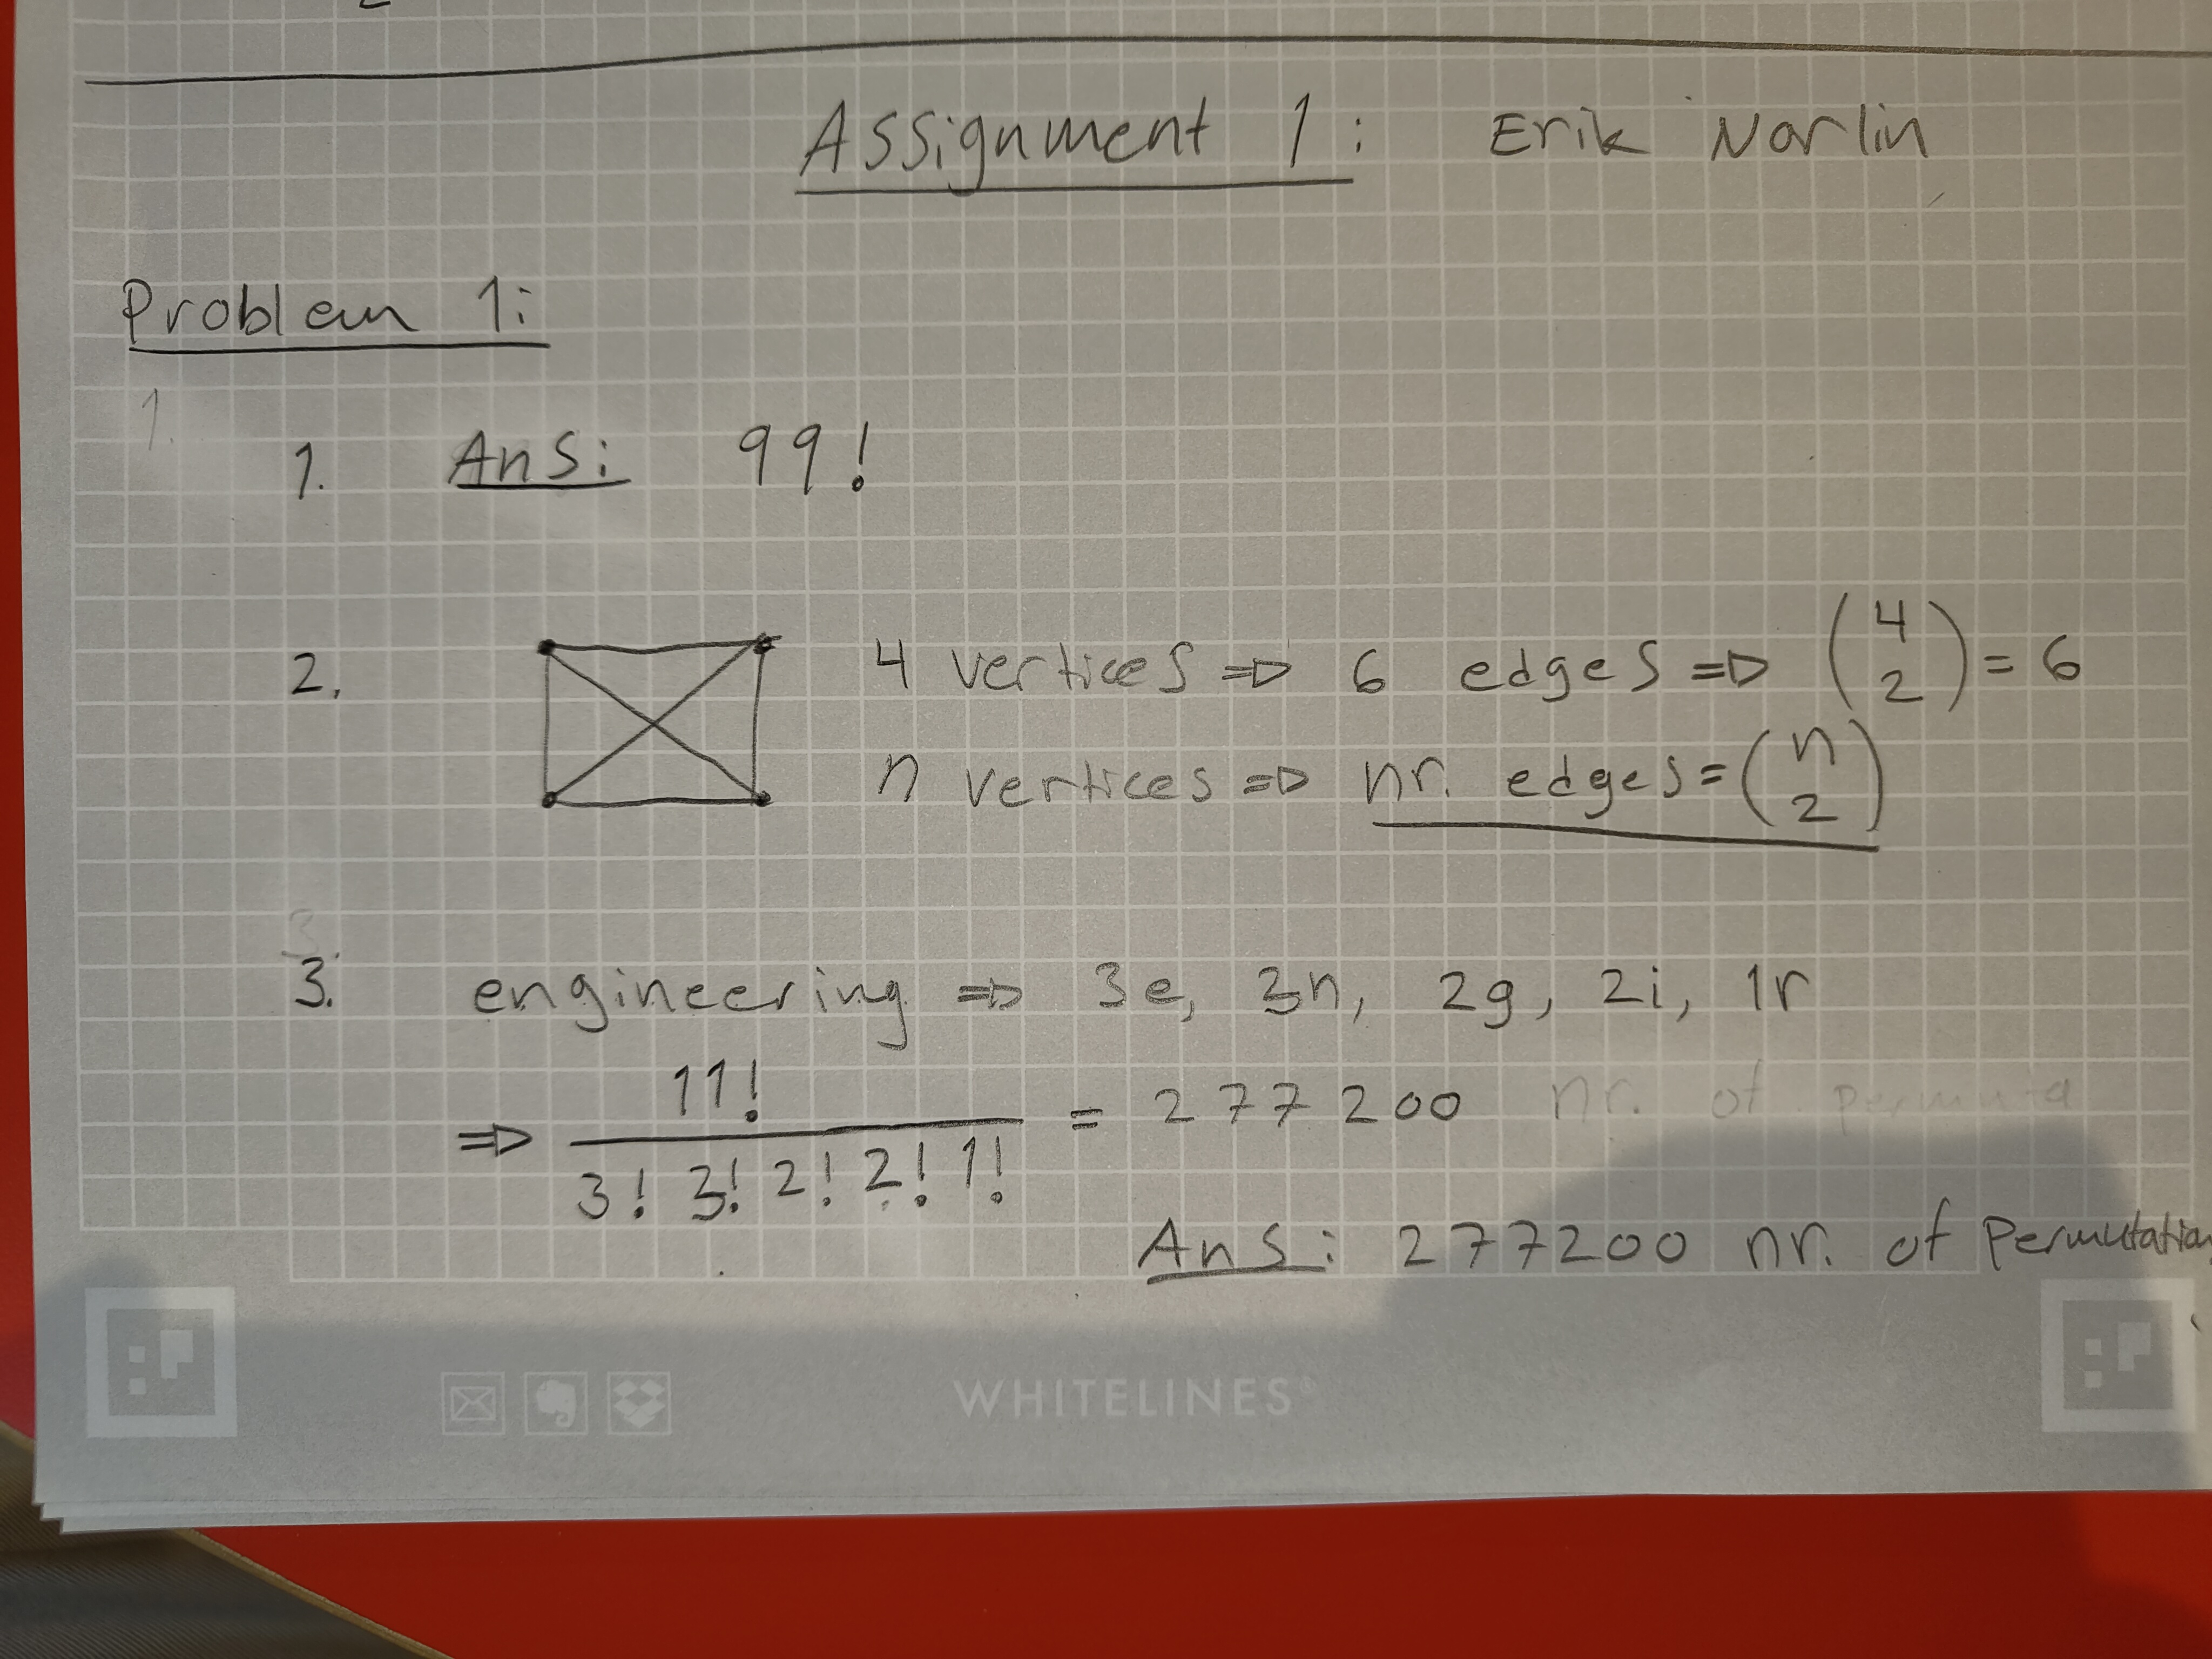 Assignment 1: Erik Norlin
Problem 1:
1.
1. Ans: 99!
2. 4 vertices => 6 edges => (4 2) = 6
n vertices => nr. edges = (n 2)
3
3. engineering => 3e, 3n, 2g, 2i, 1r
=> 11! / 3! 3! 2! 2! 1! = 277200 nr. of permuta
Ans: 277200 nr. of Permutation
WHITELINES®